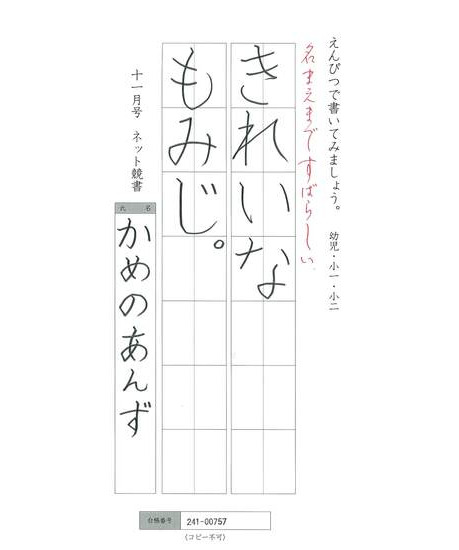 えんぴつで書いてみましょう。 幼児・小一・小二
名まえまですばらしい
きれいな
もみじ。
十一月号 ネット競書
氏 名
かめのあんず
台帳番号 241-00757
(コピー不可)